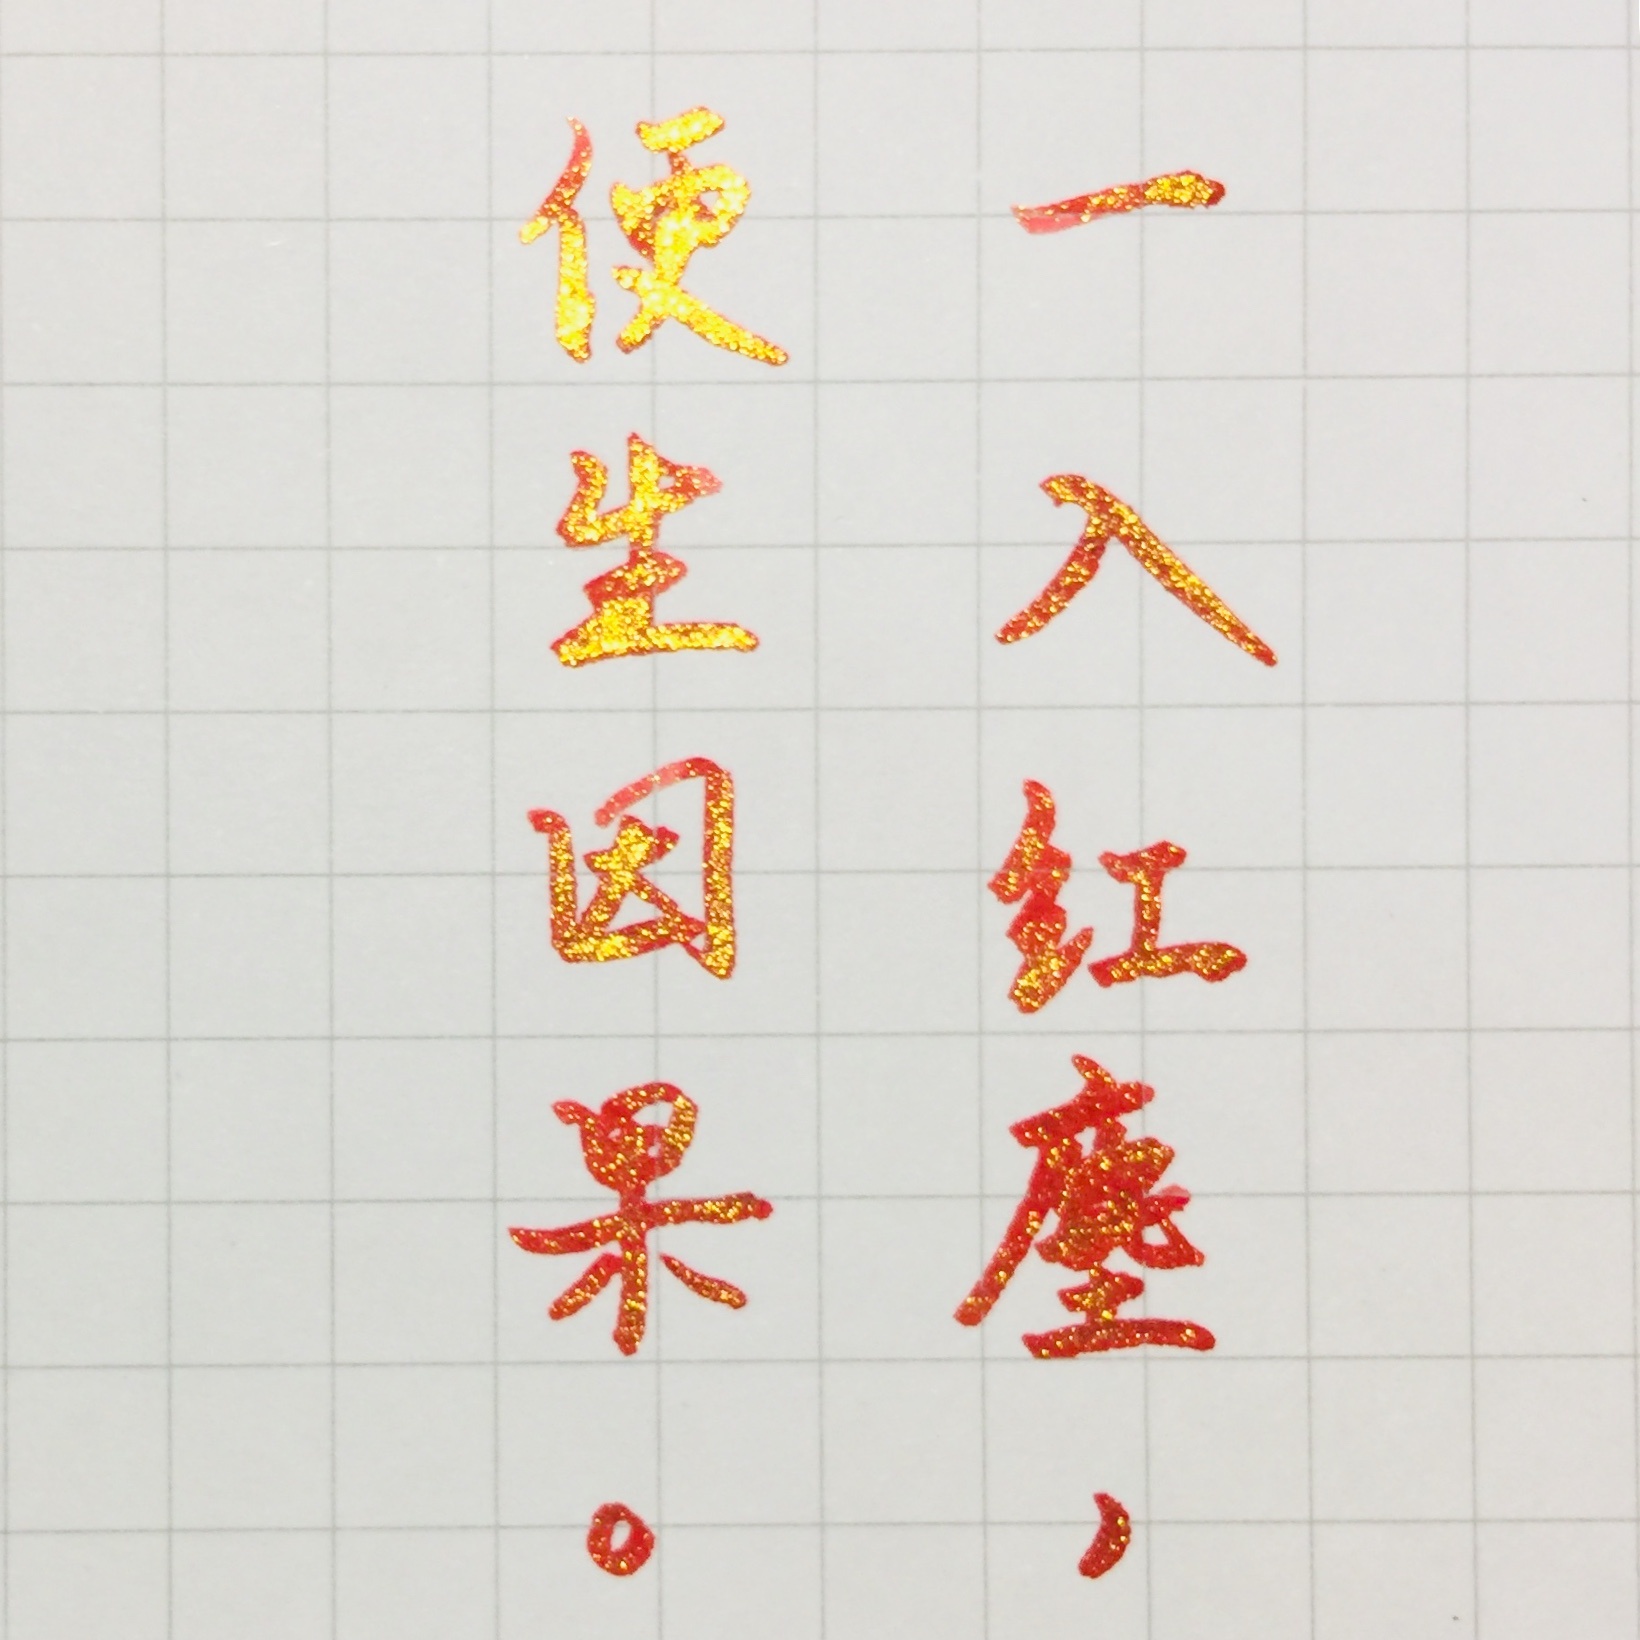 一入紅塵，
便生因果。